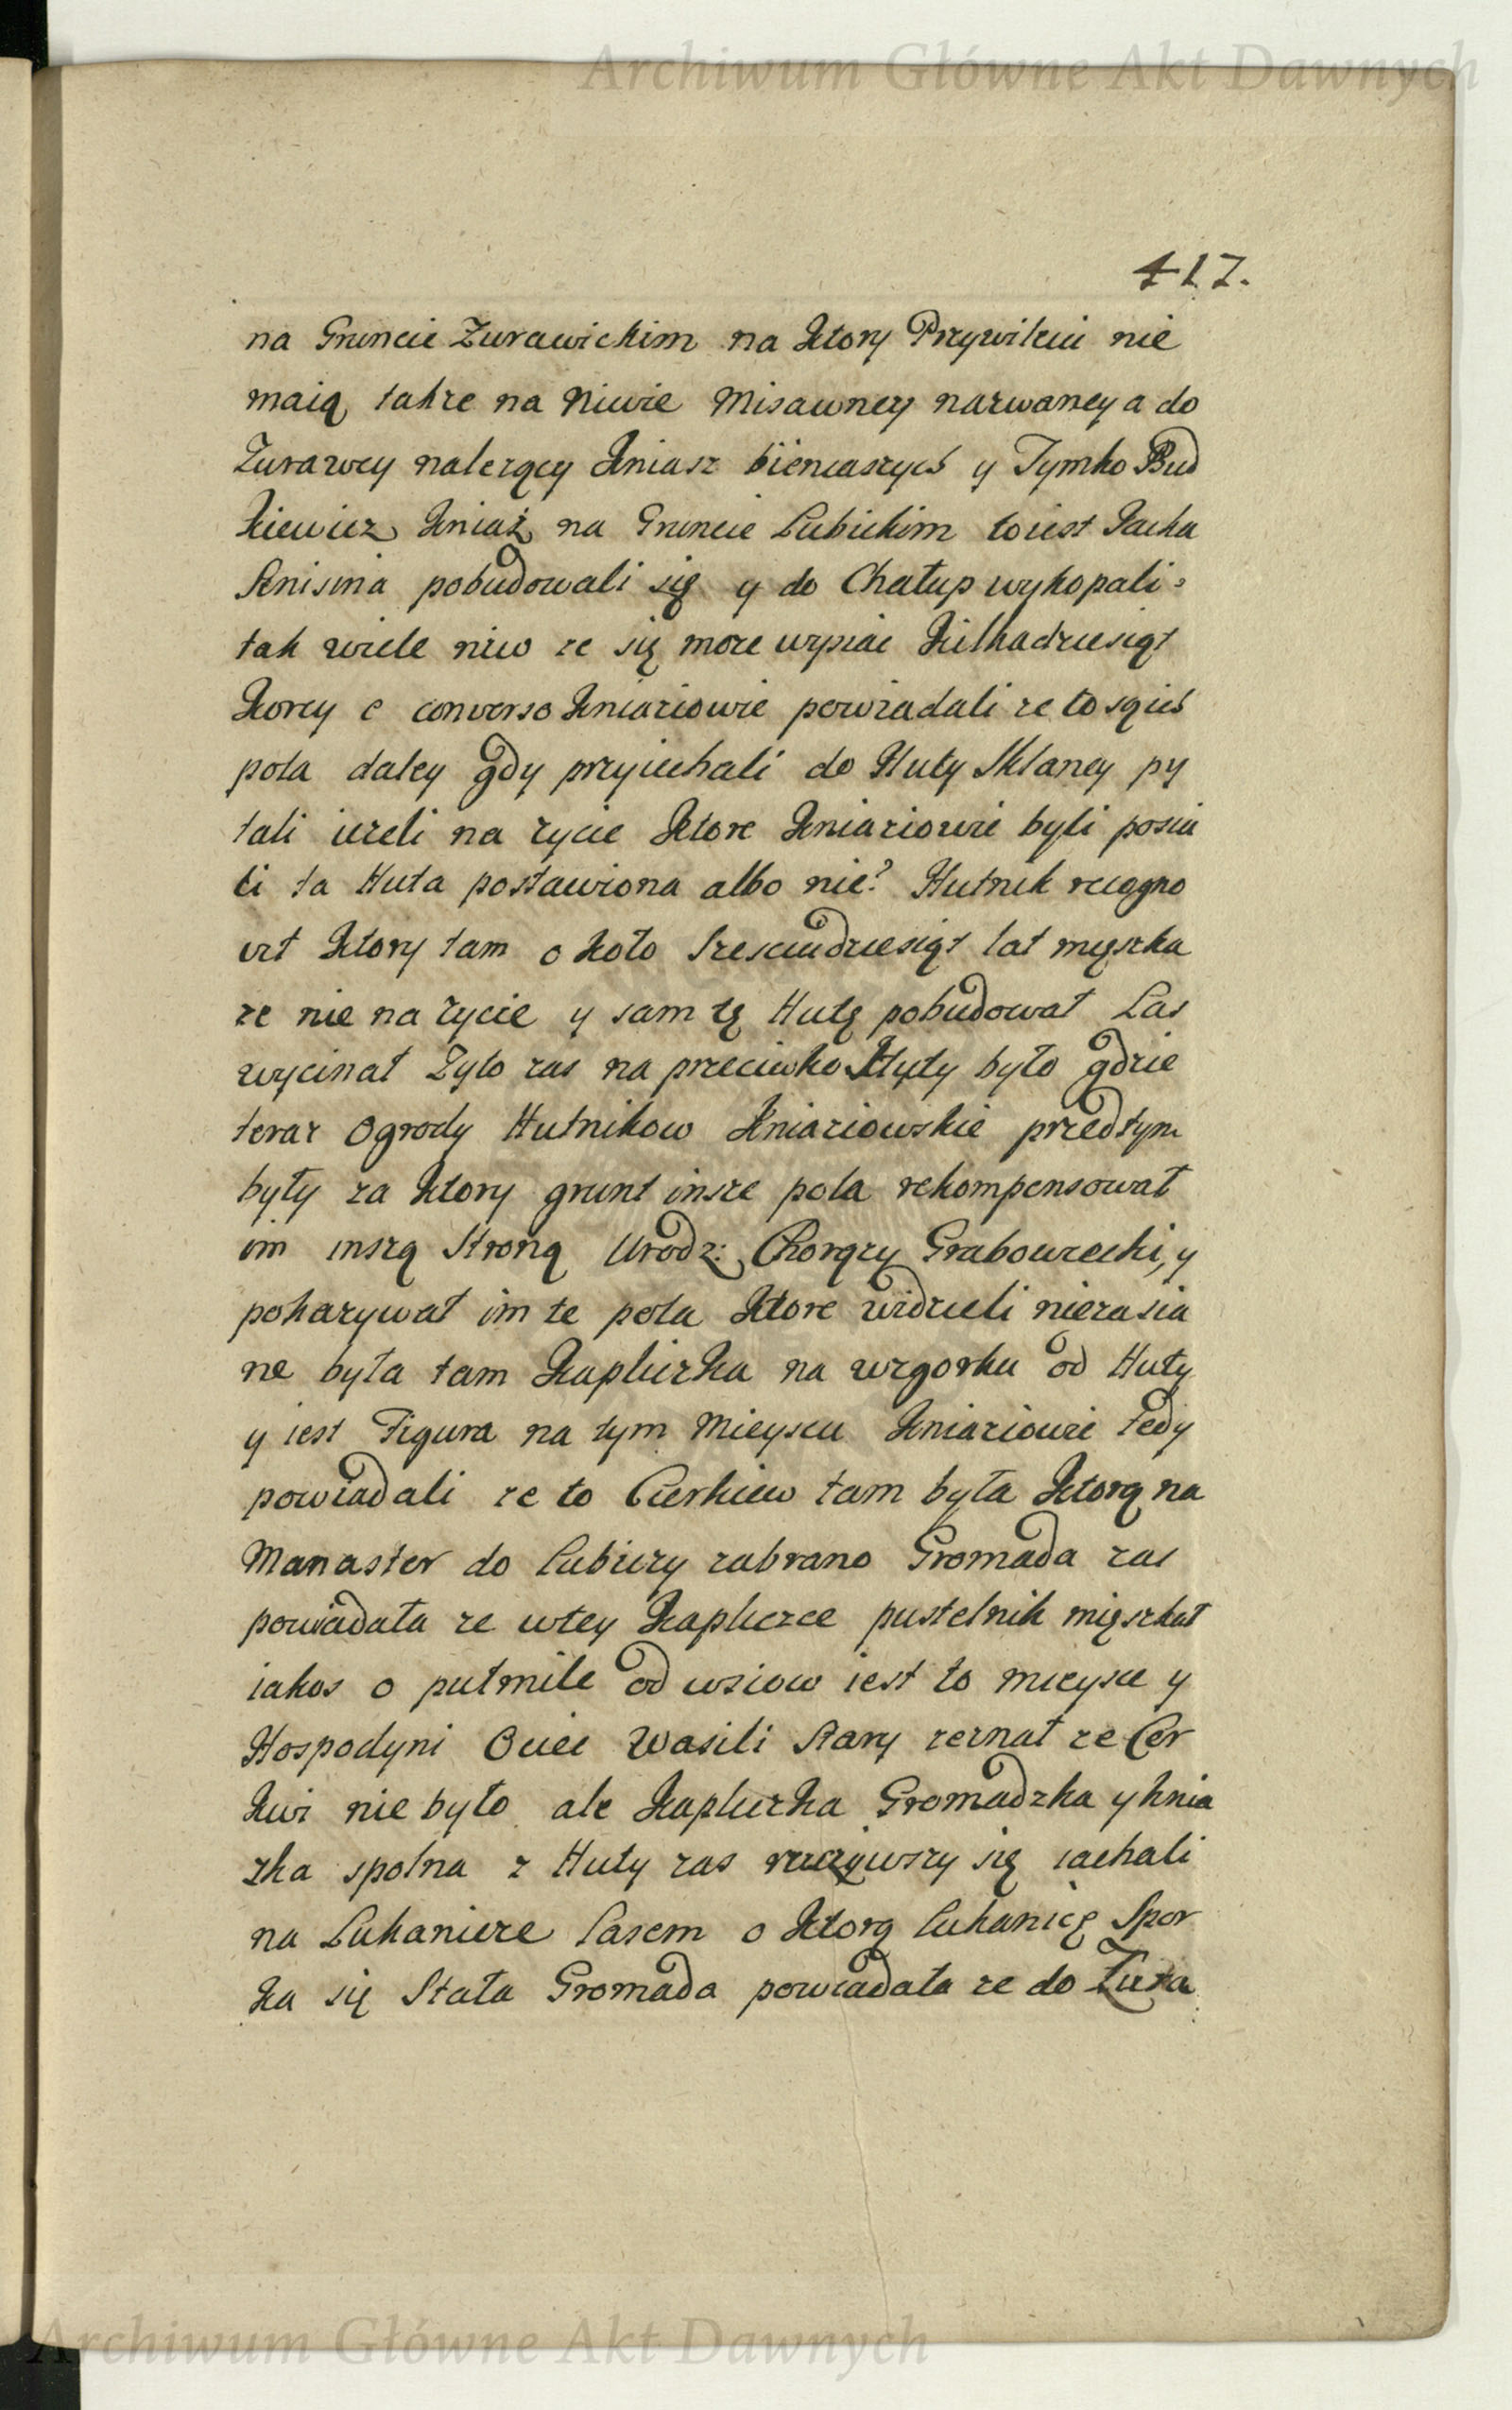 Archiwum Główne Akt Dawnych
417.
na Gruncie Zurawickim na ktory Przywileiu nie
maią takze na Niwie Misawney nazwaney a do
Zurawcy nalezący Kniasz bieniaszycʒ y Tymko Bud
kiewicz Kniaź na Gruncie Lubickim toiest Jacka
Anisima pobudowali się y do Chałup wykopali
tak wiele niw ze się moze wysiac kilkadziesiąt
korcy e converso Kniaziowie powiadali ze to sąich
pola daley gdy przyiechali do Huty Sklaney py
tali iezeli na zycie ktore Kniaziowie byli posia
li ta Huta postawiona albo nie? Hutnik recogno
vit ktory tam o koło szesciudziesiąt lat męszka
ze nie na zycie y sam tę Hutę pobudował Las
wycinał Zyto zas na przeciwko Huty było gdzie
teraz Ogrody Hutnikow Kniaziowskie przedtym
były za ktory grunt insze pola rekompensował
im inszą Stroną Urodz: Chorąży Grabowiecki, y
pokazywał im te pola ktore widzieli niezasia
ne była tam kapliczka na wzgorku od Huty
y iest Figura na tym Mieyscu Kniaziowie tedy
powiadali ze to Cierkiew tam była ktorą na
Manaster do Lubiczy zabrano Gromada zas
powiadała ze wtey kapliczce pustelnik mięszkał
iakos o pułmile od wsiow iest to mieysce y
Hospodyni Ociec Wasili Stary zeznał ze Cer
kwi nie było ale kapliczka Gromadzka y knia
zka spolna z Huty zas ruciwszy się iachali
na Lukawicze Lasem o ktorą Lukawicę Spor
ka się Stała Gromada powiadała ze do Zura
Archiwum Główne Akt Dawnych